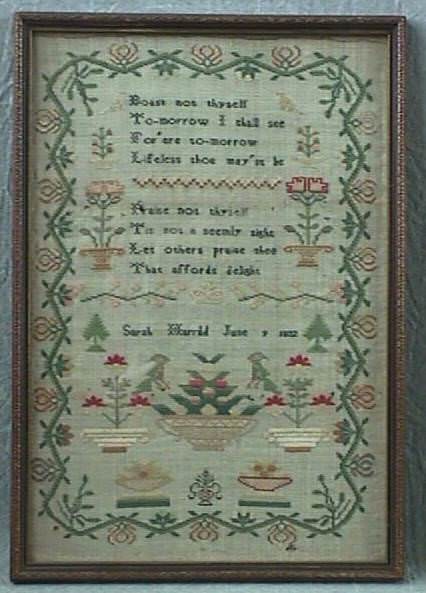 Boast not thyself
To-morrow I shall see
For'ere to-morrow
Lifeless thou may'st be
Praise not thyself
Tis not a seemly sight
Let others praise thee
That affords delight
Sarah June 9